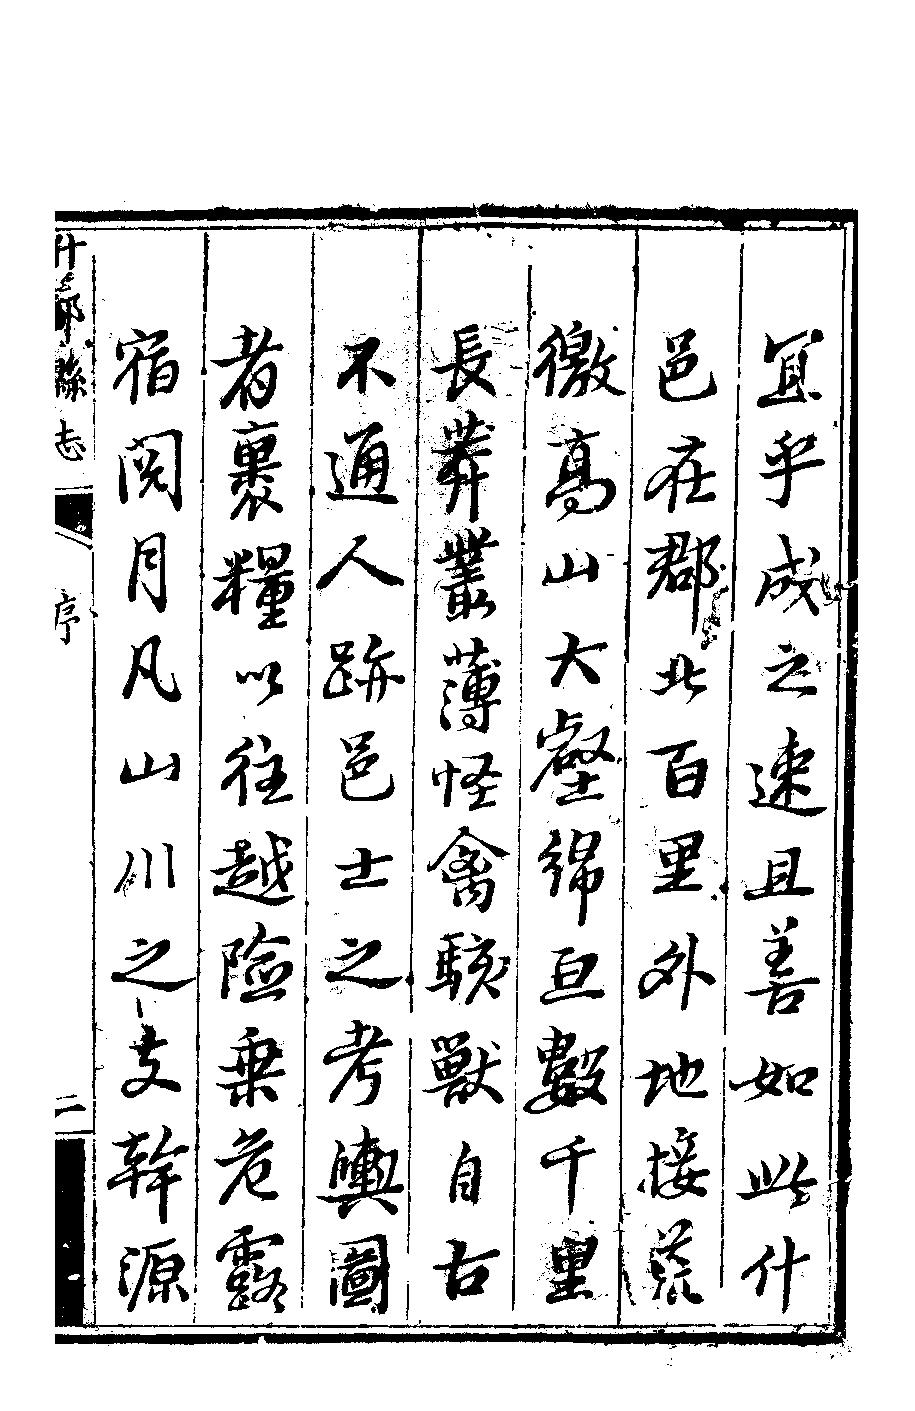 宜乎成之速且善如此什
邑在郡北百里外地接荒
徼高山大壑綿亘數千里
長莾叢薄怪禽駭獸自古
不通人跡邑士之考輿圖
者裹糧以往越險乗危露
宿閱月凡山川之支幹源
什邡縣志
序
二